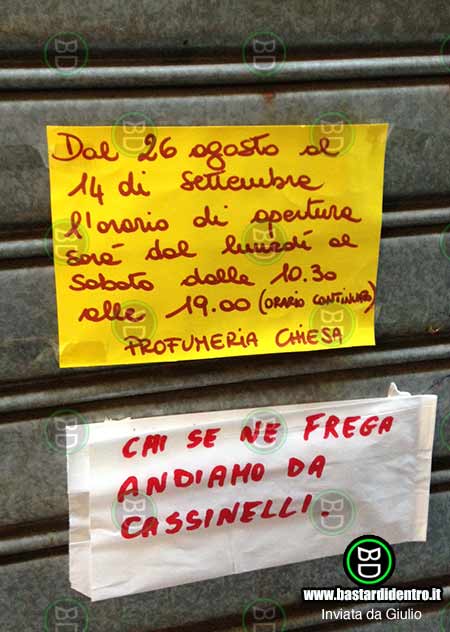 Dal 26 agosto al
14 di Settembre
l'orario di apertura
sarà dal lunedì al
Sabato dalle 10.30
alle 19.00 (ORARIO CONTINUATO)
PROFUMERIA CHIESA
CHI SE NE FREGA
ANDIAMO DA
CASSINELLI.
www.bastardidentro.it
Inviata da Giulio